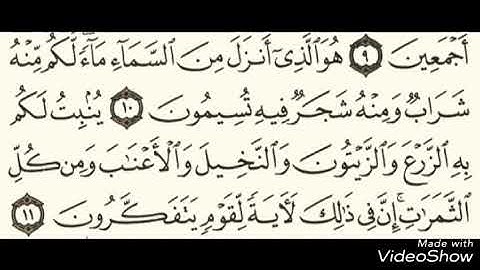 أَجْمَعِينَ ٩ هُوَ الَّذِي أَنزَلَ مِنَ السَّمَاءِ مَاءً لَّكُم مِّنْهُ
شَرَابٌ وَمِنْهُ شَجَرٌ فِيهِ تُسِيمُونَ ١٠ يُنبِتُ لَكُم
بِهِ الزَّرْعَ وَالزَّيْتُونَ وَالنَّخِيلَ وَالْأَعْنَٰبَ وَمِن كُلِّ
الثَّمَرَٰتِ إِنَّ فِي ذَٰلِكَ لَآيَةً لِّقَوْمٍ يَتَفَكَّرُونَ ١١
Made with
VideoShow